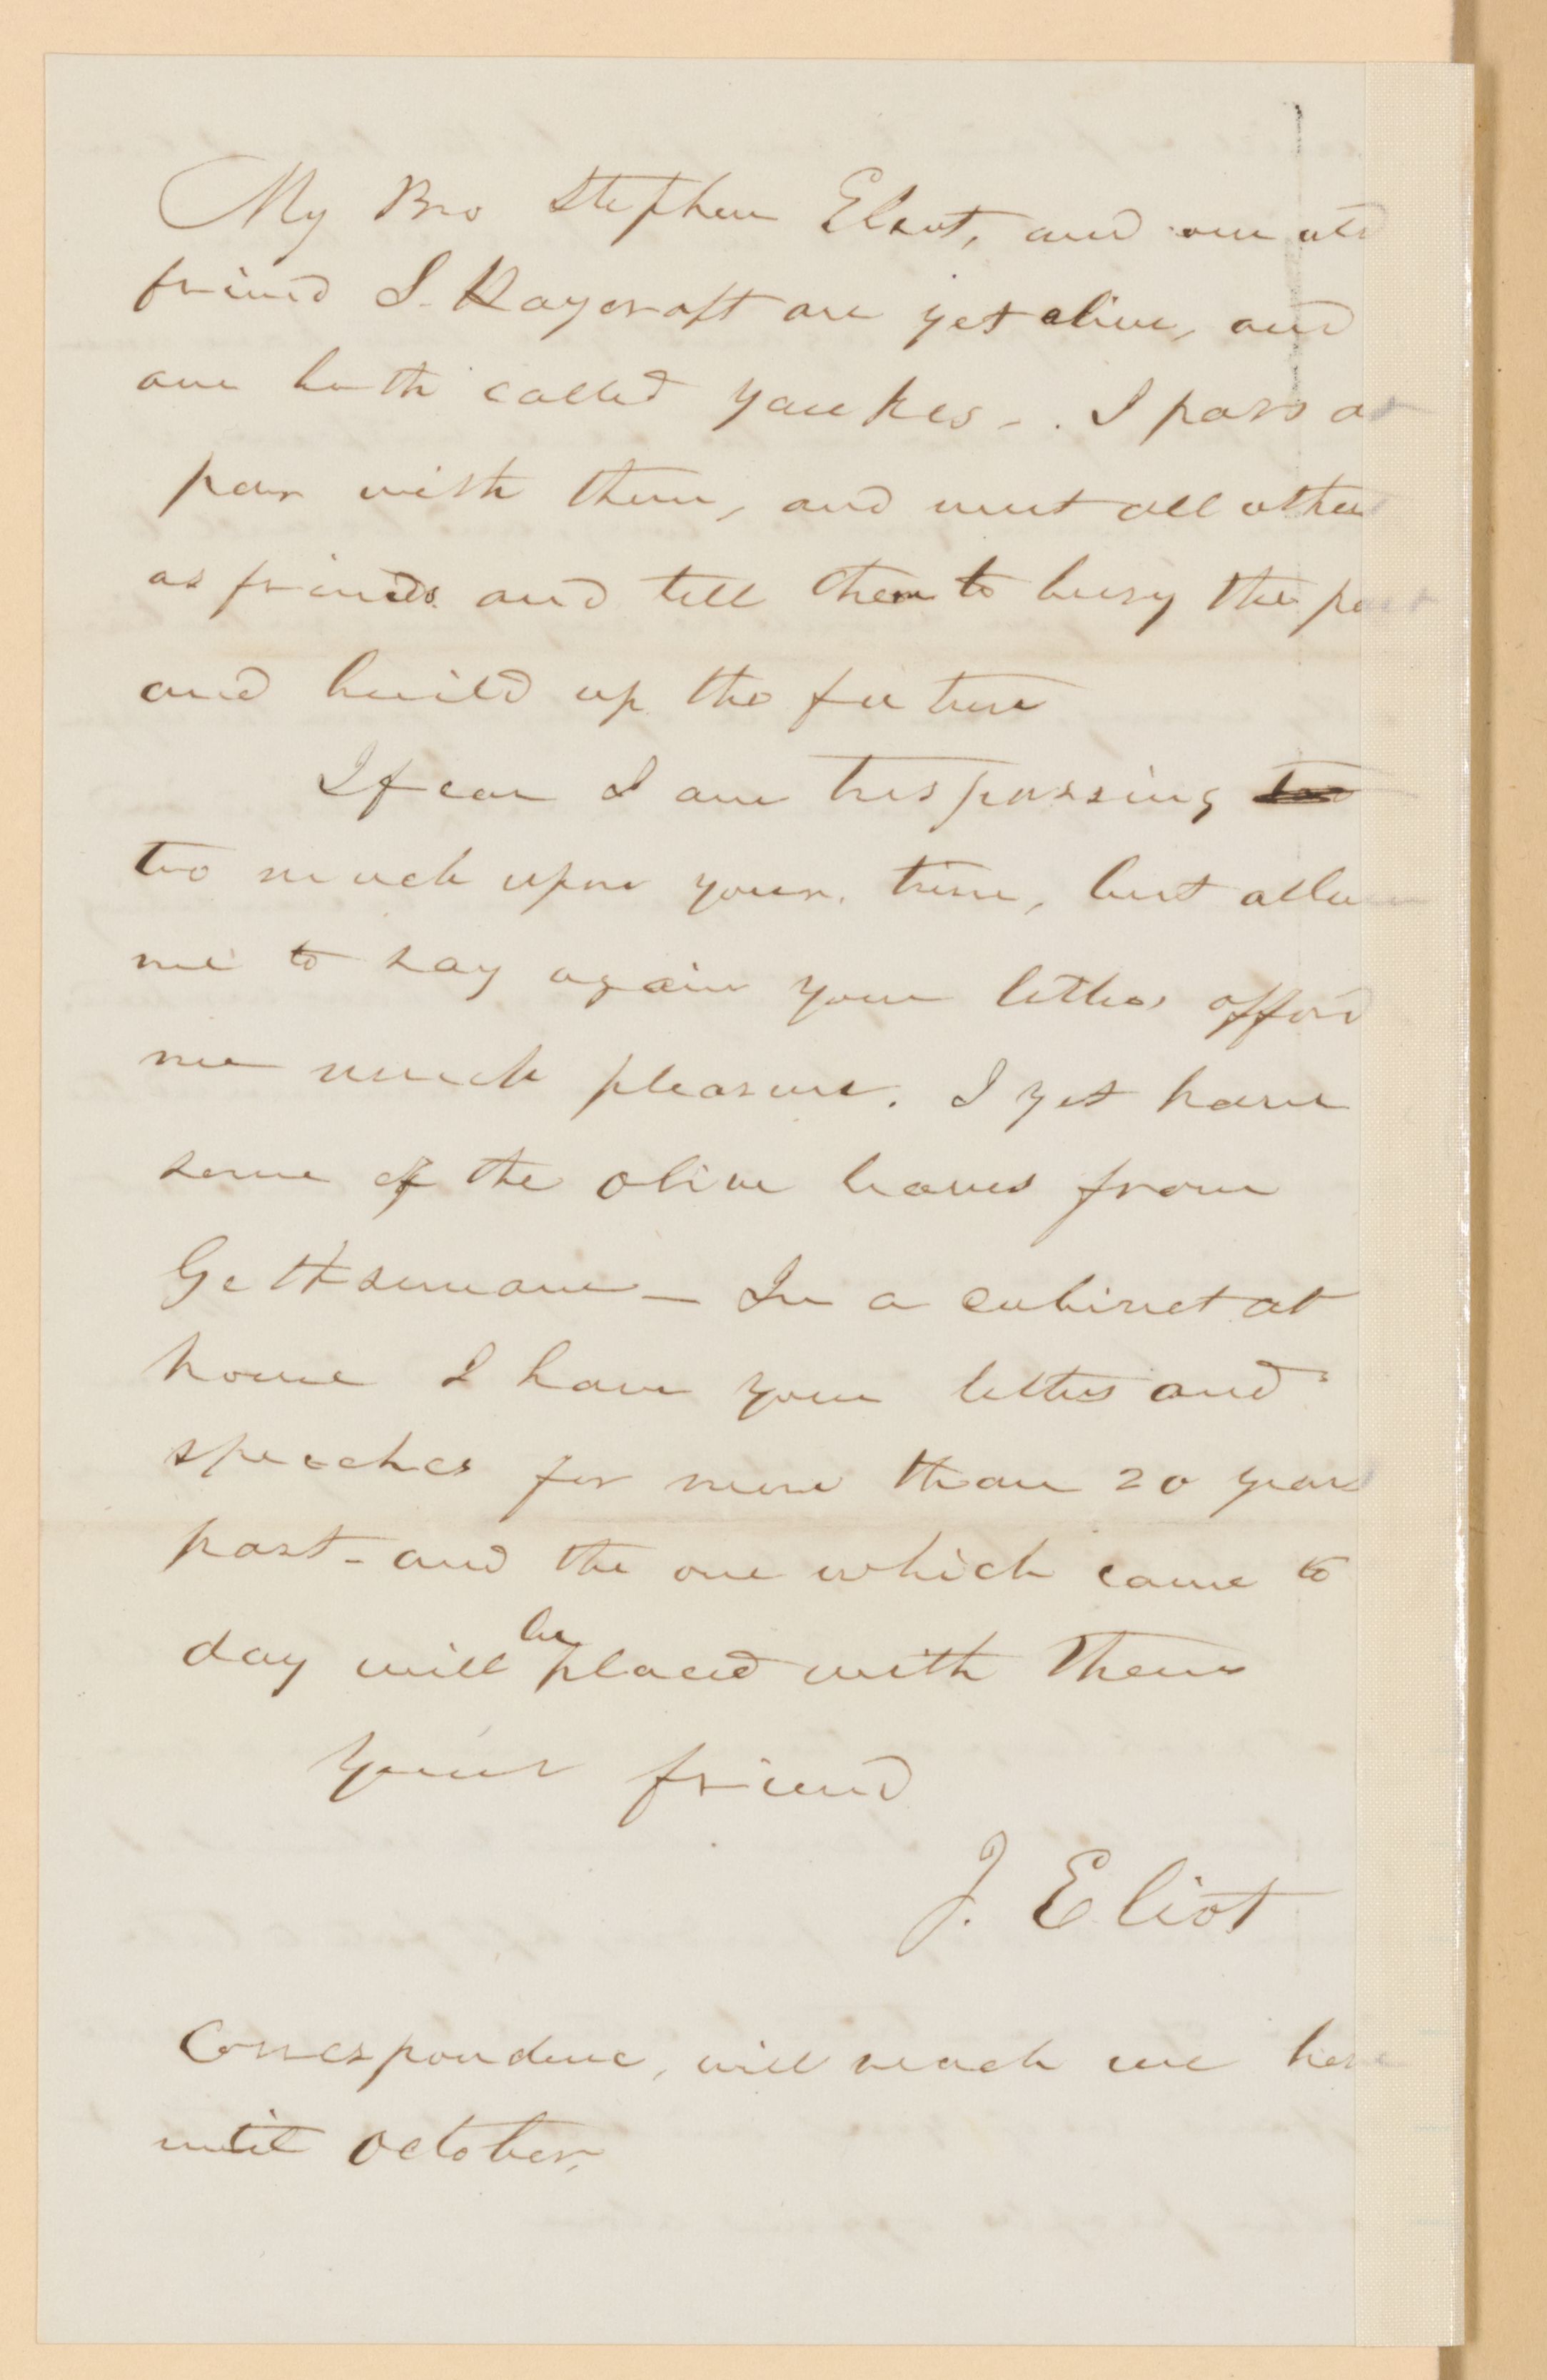 My Bro Stephen Eliot, and our old
friend S. Haycraft are yet alive, and
are both called yankes -. I pass at
par with them, and meet all others
as friends and tell them to bury the past
and build up the future
I fear I am trespassing too
too much upon your time, but allow
me to say again your letters afford
me much pleasure. I yet have
some of the olive leaves from
Gethsemane — In a cabinet at
home I have your letters and
speeches for more than 20 years
past - and the one which came to
day will be placed with them
your friend
J. Eliot
Correspondence, will reach me here
until October.